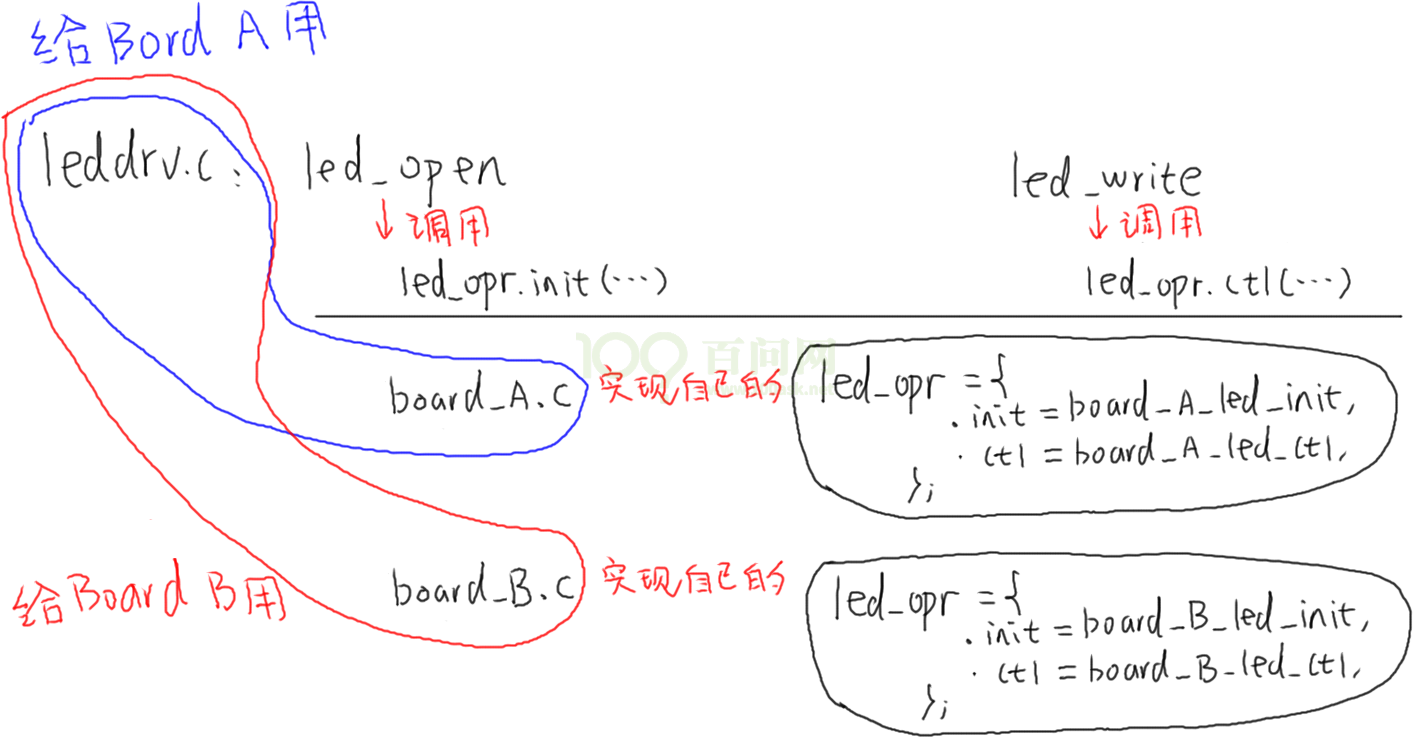 给Bord A用
leddrv.c:
led_open
↓调用
led_opr.init(...)
led_write
↓调用
led_opr.ctl(...)
100 百问网
board_A.c 实现自己的
led_opr = {
.init = board_A_led_init,
.ctl = board_A_led_ctl,
};
给Board B用
board_B.c 实现自己的
led_opr = {
.init = board_B_led_init,
.ctl = board_B_led_ctl,
};